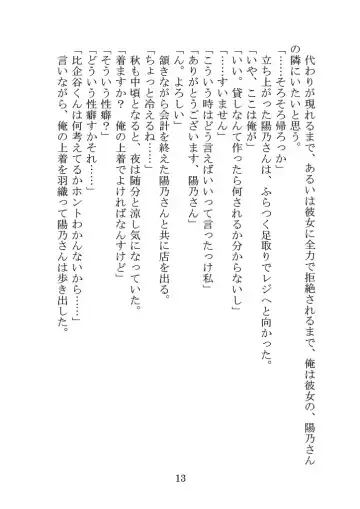 代わりが現れるまで、あるいは彼女に全力で拒絶されるまで、俺は彼女の、陽乃さん
の隣にいたいと思う。
「……そろそろ帰ろっか」
立ち上がった陽乃さんは、ふらつく足取りでレジへと向かった。
「いや、ここは俺が」
「いい。貸しなんて作ったら何されるか分からないし」
「……すいません」
「こういう時はどう言えばいいって言ったっけ私」
「ありがとうございます、陽乃さん」
「ん。よろしい」
頷きながら会計を終えた陽乃さんと共に店を出る。
「ちょっと冷えるね……」
秋も中頃となると、夜は随分と涼し気になっていた。
「着ますか？　俺の上着でよければなんすけど」
「そういう性癖？」
「どういう性癖すかそれ……」
「比企谷くんは何考えてるかホントわかんないから……」
言いながら、俺の上着を羽織って陽乃さんは歩き出した。
13